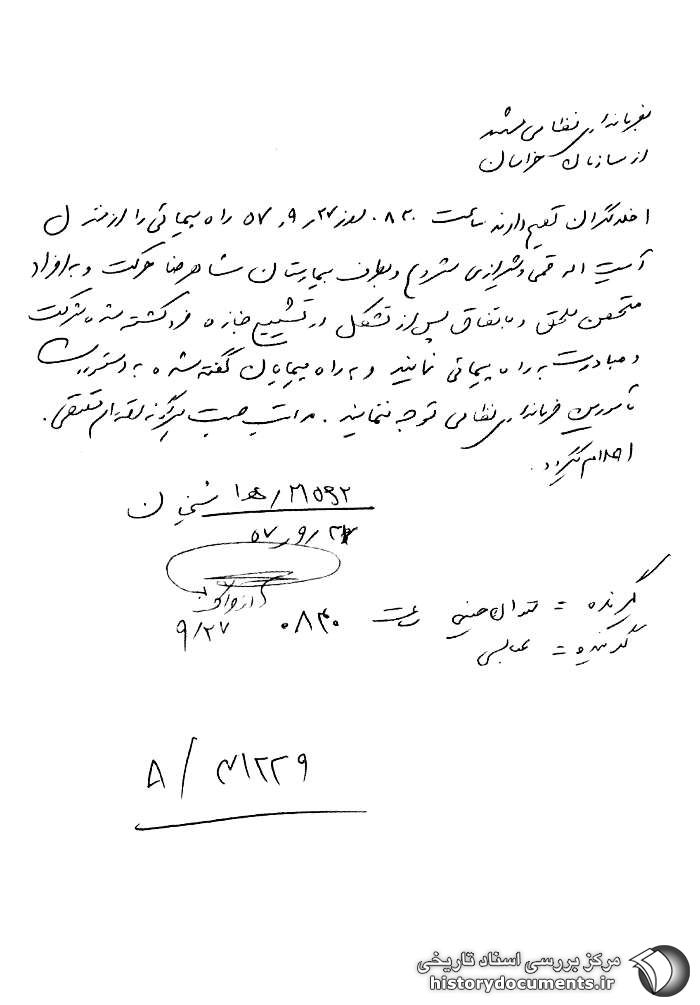 بفرمانداری نظامی مشهد
از سازمان خراسان
اخلالگران تصمیم دارند ساعت ۰۸۳۰ روز ۲۷ر۹ر۵۷ راه پیمائی را از منزل
آیت اله قمی و شیرازی شروع و بطرف بیمارستان شاهرضا حرکت و به افراد
متحصن ملحق و باتفاق پس از تشکل در تشییع جنازه فرد کشته شده شرکت
و مبادرت به راه پیمائی نمایند و به راه پیمایان گفته شده به دستورات
مامورین فرمانداری نظامی توجه ننمایند. مراتب جهت هرگونه اقدام مقتضی.
اعلام میگردد.
۲۱۵۹۲/ ۱ه شیخان
۲۷ر۹ر۵۷
۹/۲۷
گیرنده = حسینی ساعت ۰۸۴۰
گوینده = عباسی
۸/ ۳۱۲۲۹
مرکز بررسی اسناد تاریخی
historydocuments.ir